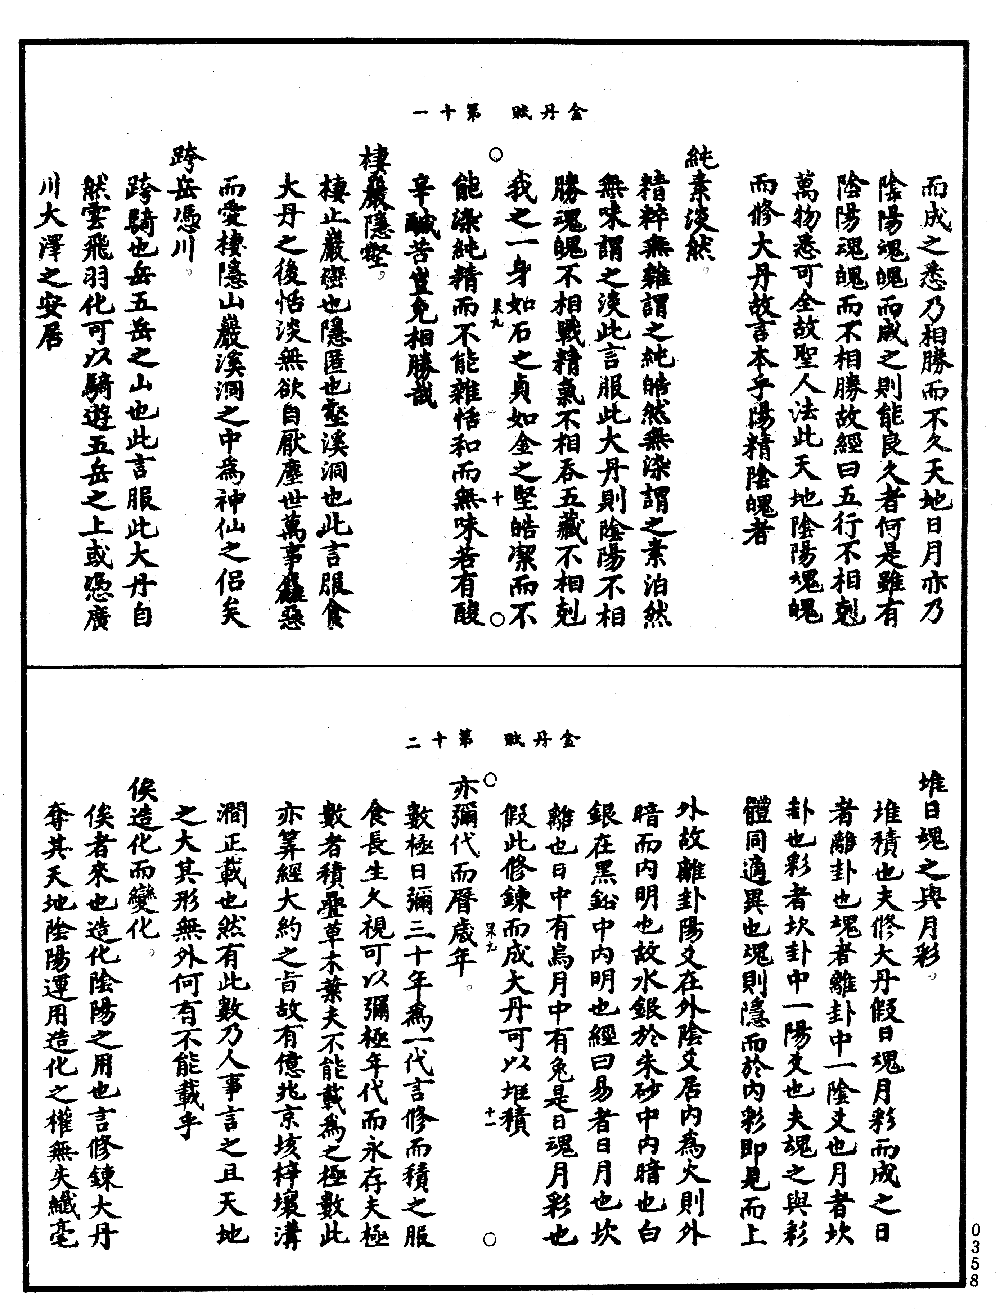 金丹賦　第十一
而成之悉乃相勝而不久天地日月亦乃
陰陽魂魄而成之則能良久者何是雖有
陰陽魂魄而不相勝故經曰五行不相剋
萬物悉可全故聖人法此天地陰陽魂魄
而修大丹故言本乎陽精陰魄者
純素淡然。
精粹無雜謂之純皓然無染謂之素泊然
無味謂之淡此言服此大丹則陰陽不相
勝魂魄不相戰精氣不相吞五藏不相剋
我之一身如石之貞如金之堅皓潔而不
果九　十
能染純精而不能雜恬和而無味若有酸
辛鹹苦豈免相勝哉
棲巖隱壑。
棲止巖巒也隱匿也壑溪洞也此言服食
大丹之後恬淡無欲自厭塵世萬事麤惡
而愛棲隱山巖溪洞之中為神仙之侶矣
跨岳憑川。
跨騎也岳五岳之山也此言服此大丹自
然雲飛羽化可以騎遊五岳之上或憑廣
川大澤之安居
金丹賦　第十二
堆日魂之與月彩。
堆積也夫修大丹假日魂月彩而成之日
者離卦也魂者離卦中一陰爻也月者坎
卦也彩者坎卦中一陽爻也夫魂之與彩
體同適異也魂則隱而於內彩即見而上
外故離卦陽爻在外陰爻居內為火則外
暗而內明也故水銀於朱砂中內暗也白
銀在黑鉛中內明也經曰易者日月也坎
離也日中有烏月中有兔是日魂月彩也
假此修鍊而成大丹可以堆積
果九　十一
亦彌代而曆歲年。
數極曰彌三十年為一代言修而積之服
食長生久視可以彌極年代而永存夫極
數者積疊草木葉夫不能載為之極數此
亦筭經大約之旨故有億兆京垓梓壤溝
澗正載也然有此數乃人事言之且天地
之大其形無外何有不能載乎
俟造化而變化。
俟者來也造化陰陽之用也言修鍊大丹
奪其天地陰陽運用造化之權無失纖毫
0358